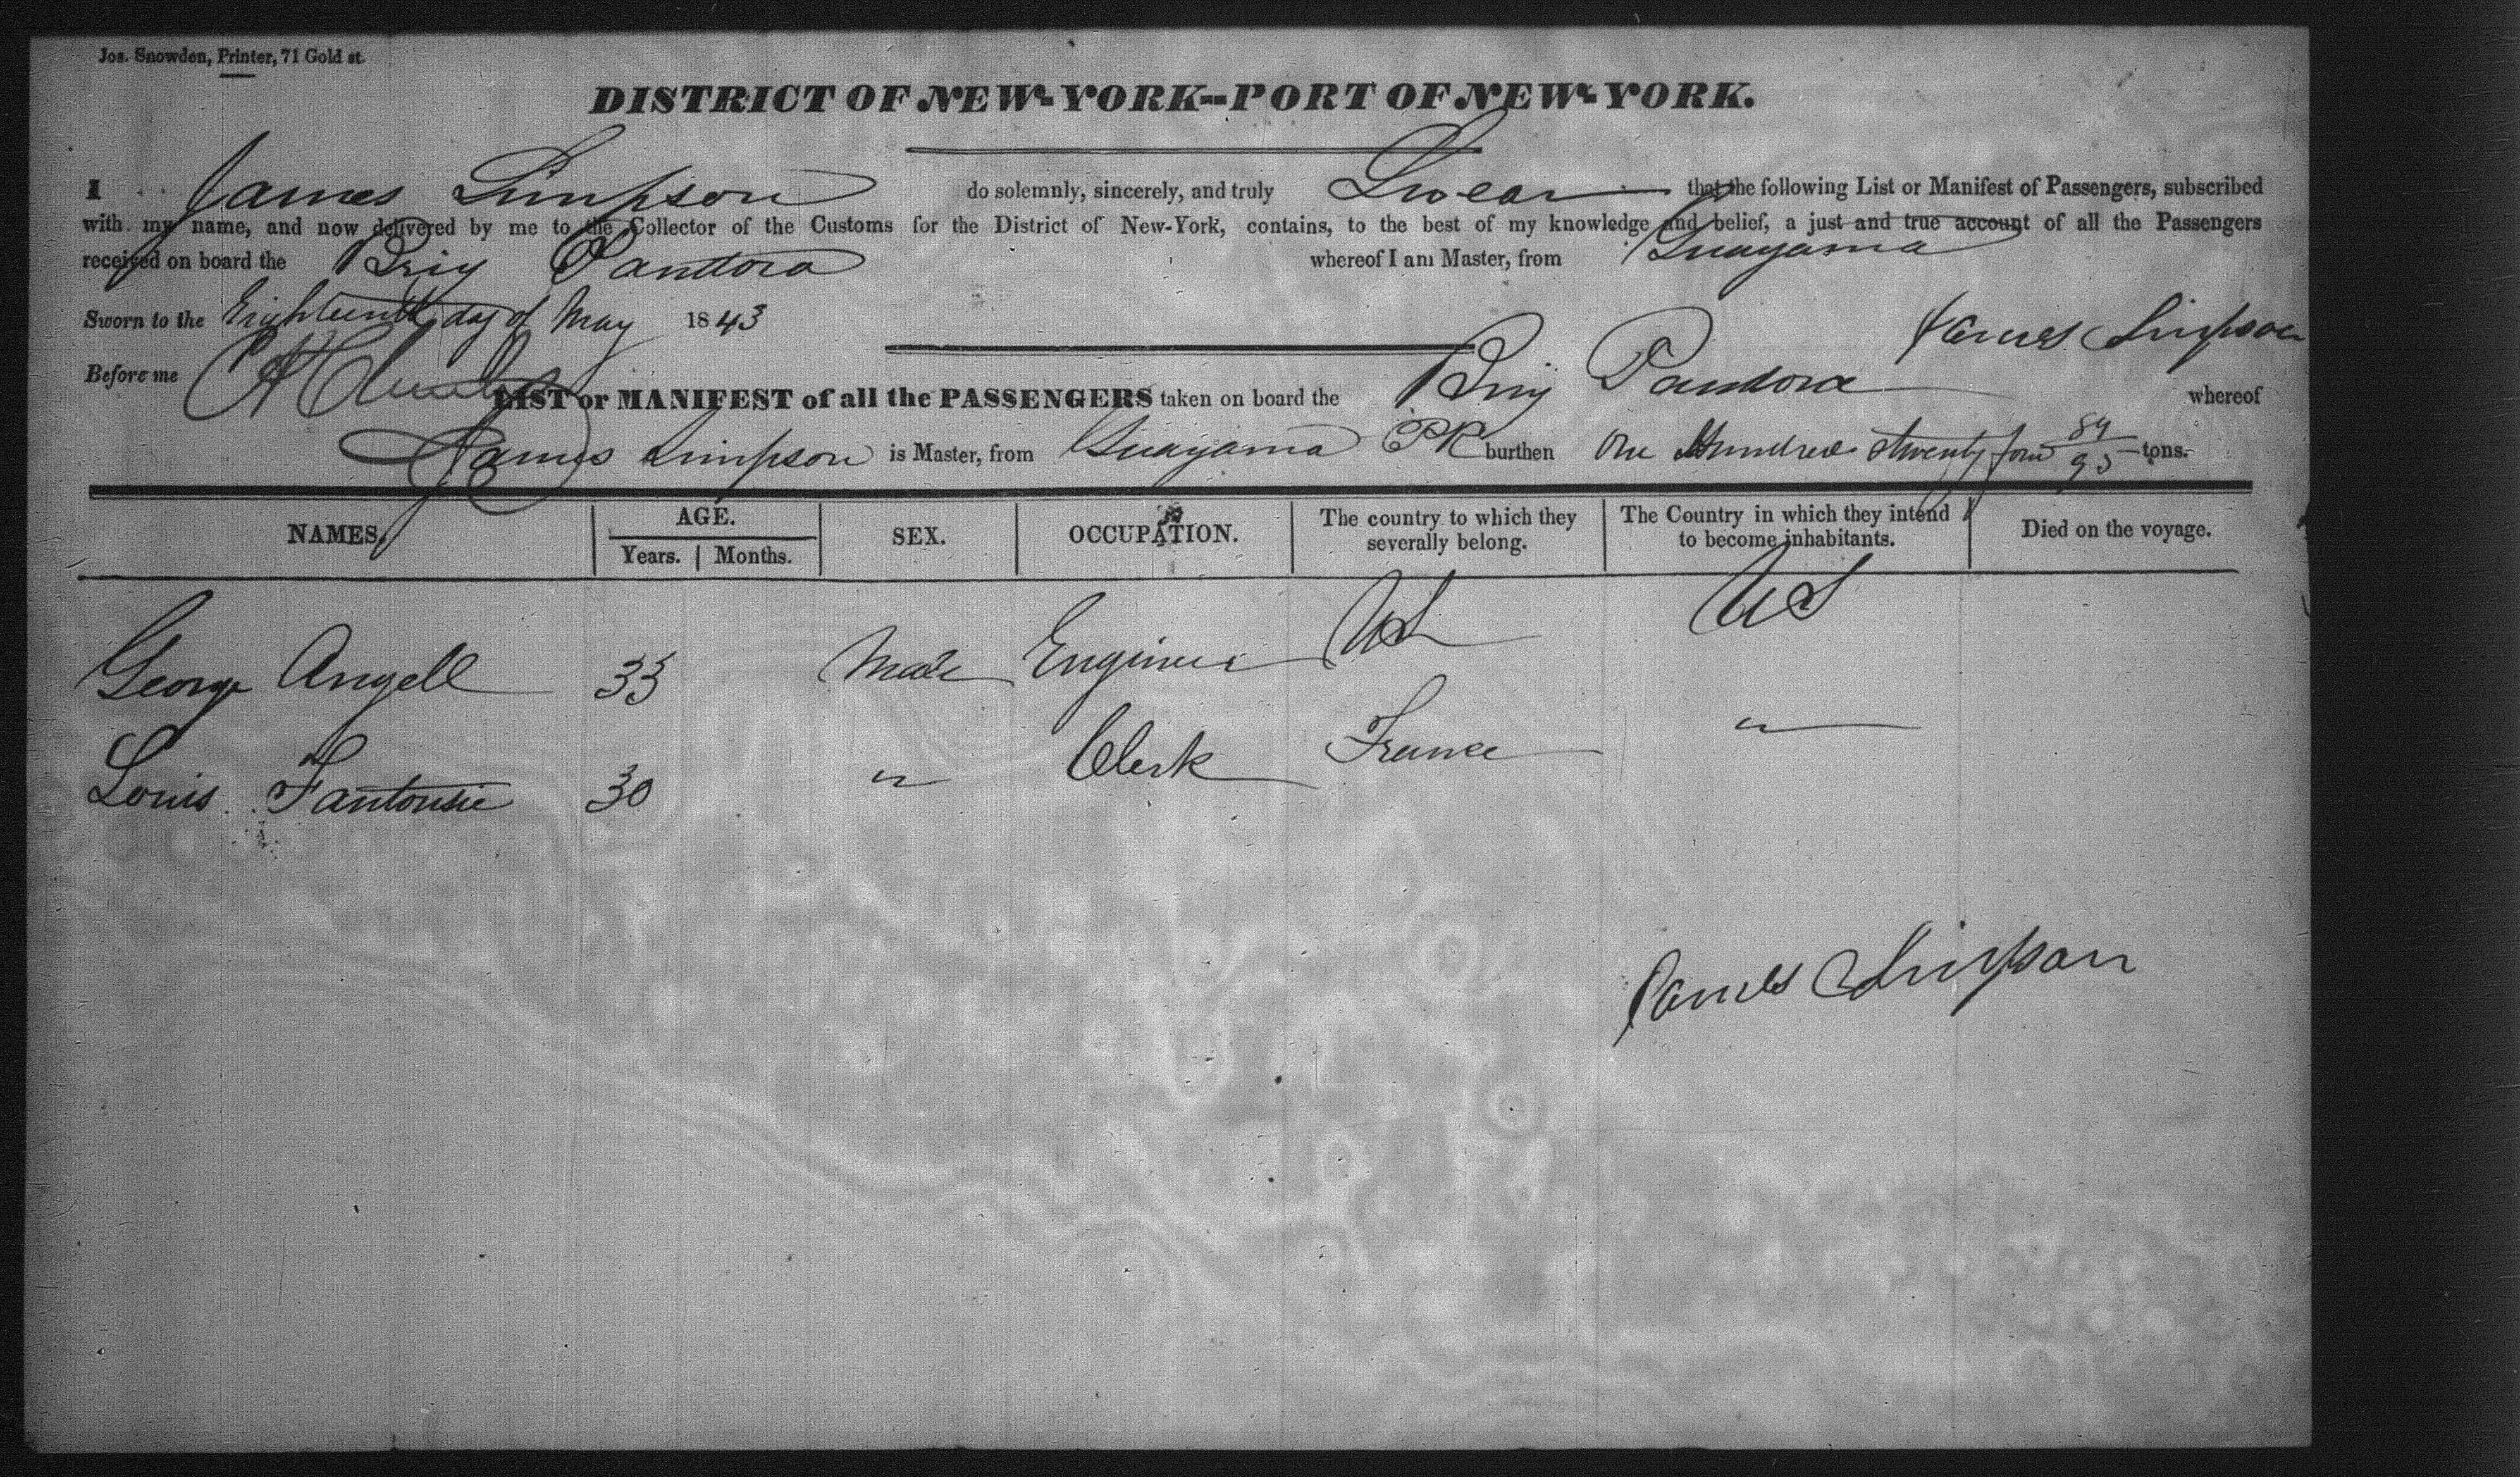 Jos. Snowden, Printer, 71 Gold st.
DISTRICT OF NEW-YORK--PORT OF NEW-YORK.
I James Simpson do solemnly, sincerely, and truly Swear that the following List or Manifest of Passengers, subscribed
with my name, and now delivered by me to the Collector of the Customs for the District of New-York, contains, to the best of my knowledge and belief, a just and true account of all the Passengers
received on board the Brig Pandora whereof I am Master, from Guayama
Sworn to the Eighteenth day of May 1843
James Simpson
Before me
LIST or MANIFEST of all the PASSENGERS taken on board the Brig Pandora whereof
James Simpson is Master, from Guayama PR burthen One Hundred & twenty four 84/95 tons.
NAMES. AGE. SEX. OCCUPATION. The country to which they severally belong. The Country in which they intend to become inhabitants. Died on the voyage.
Years. Months.
George Angell 33 Male Engineer US US
Louis Fantousie 30 " Clerk France "
James Simpson